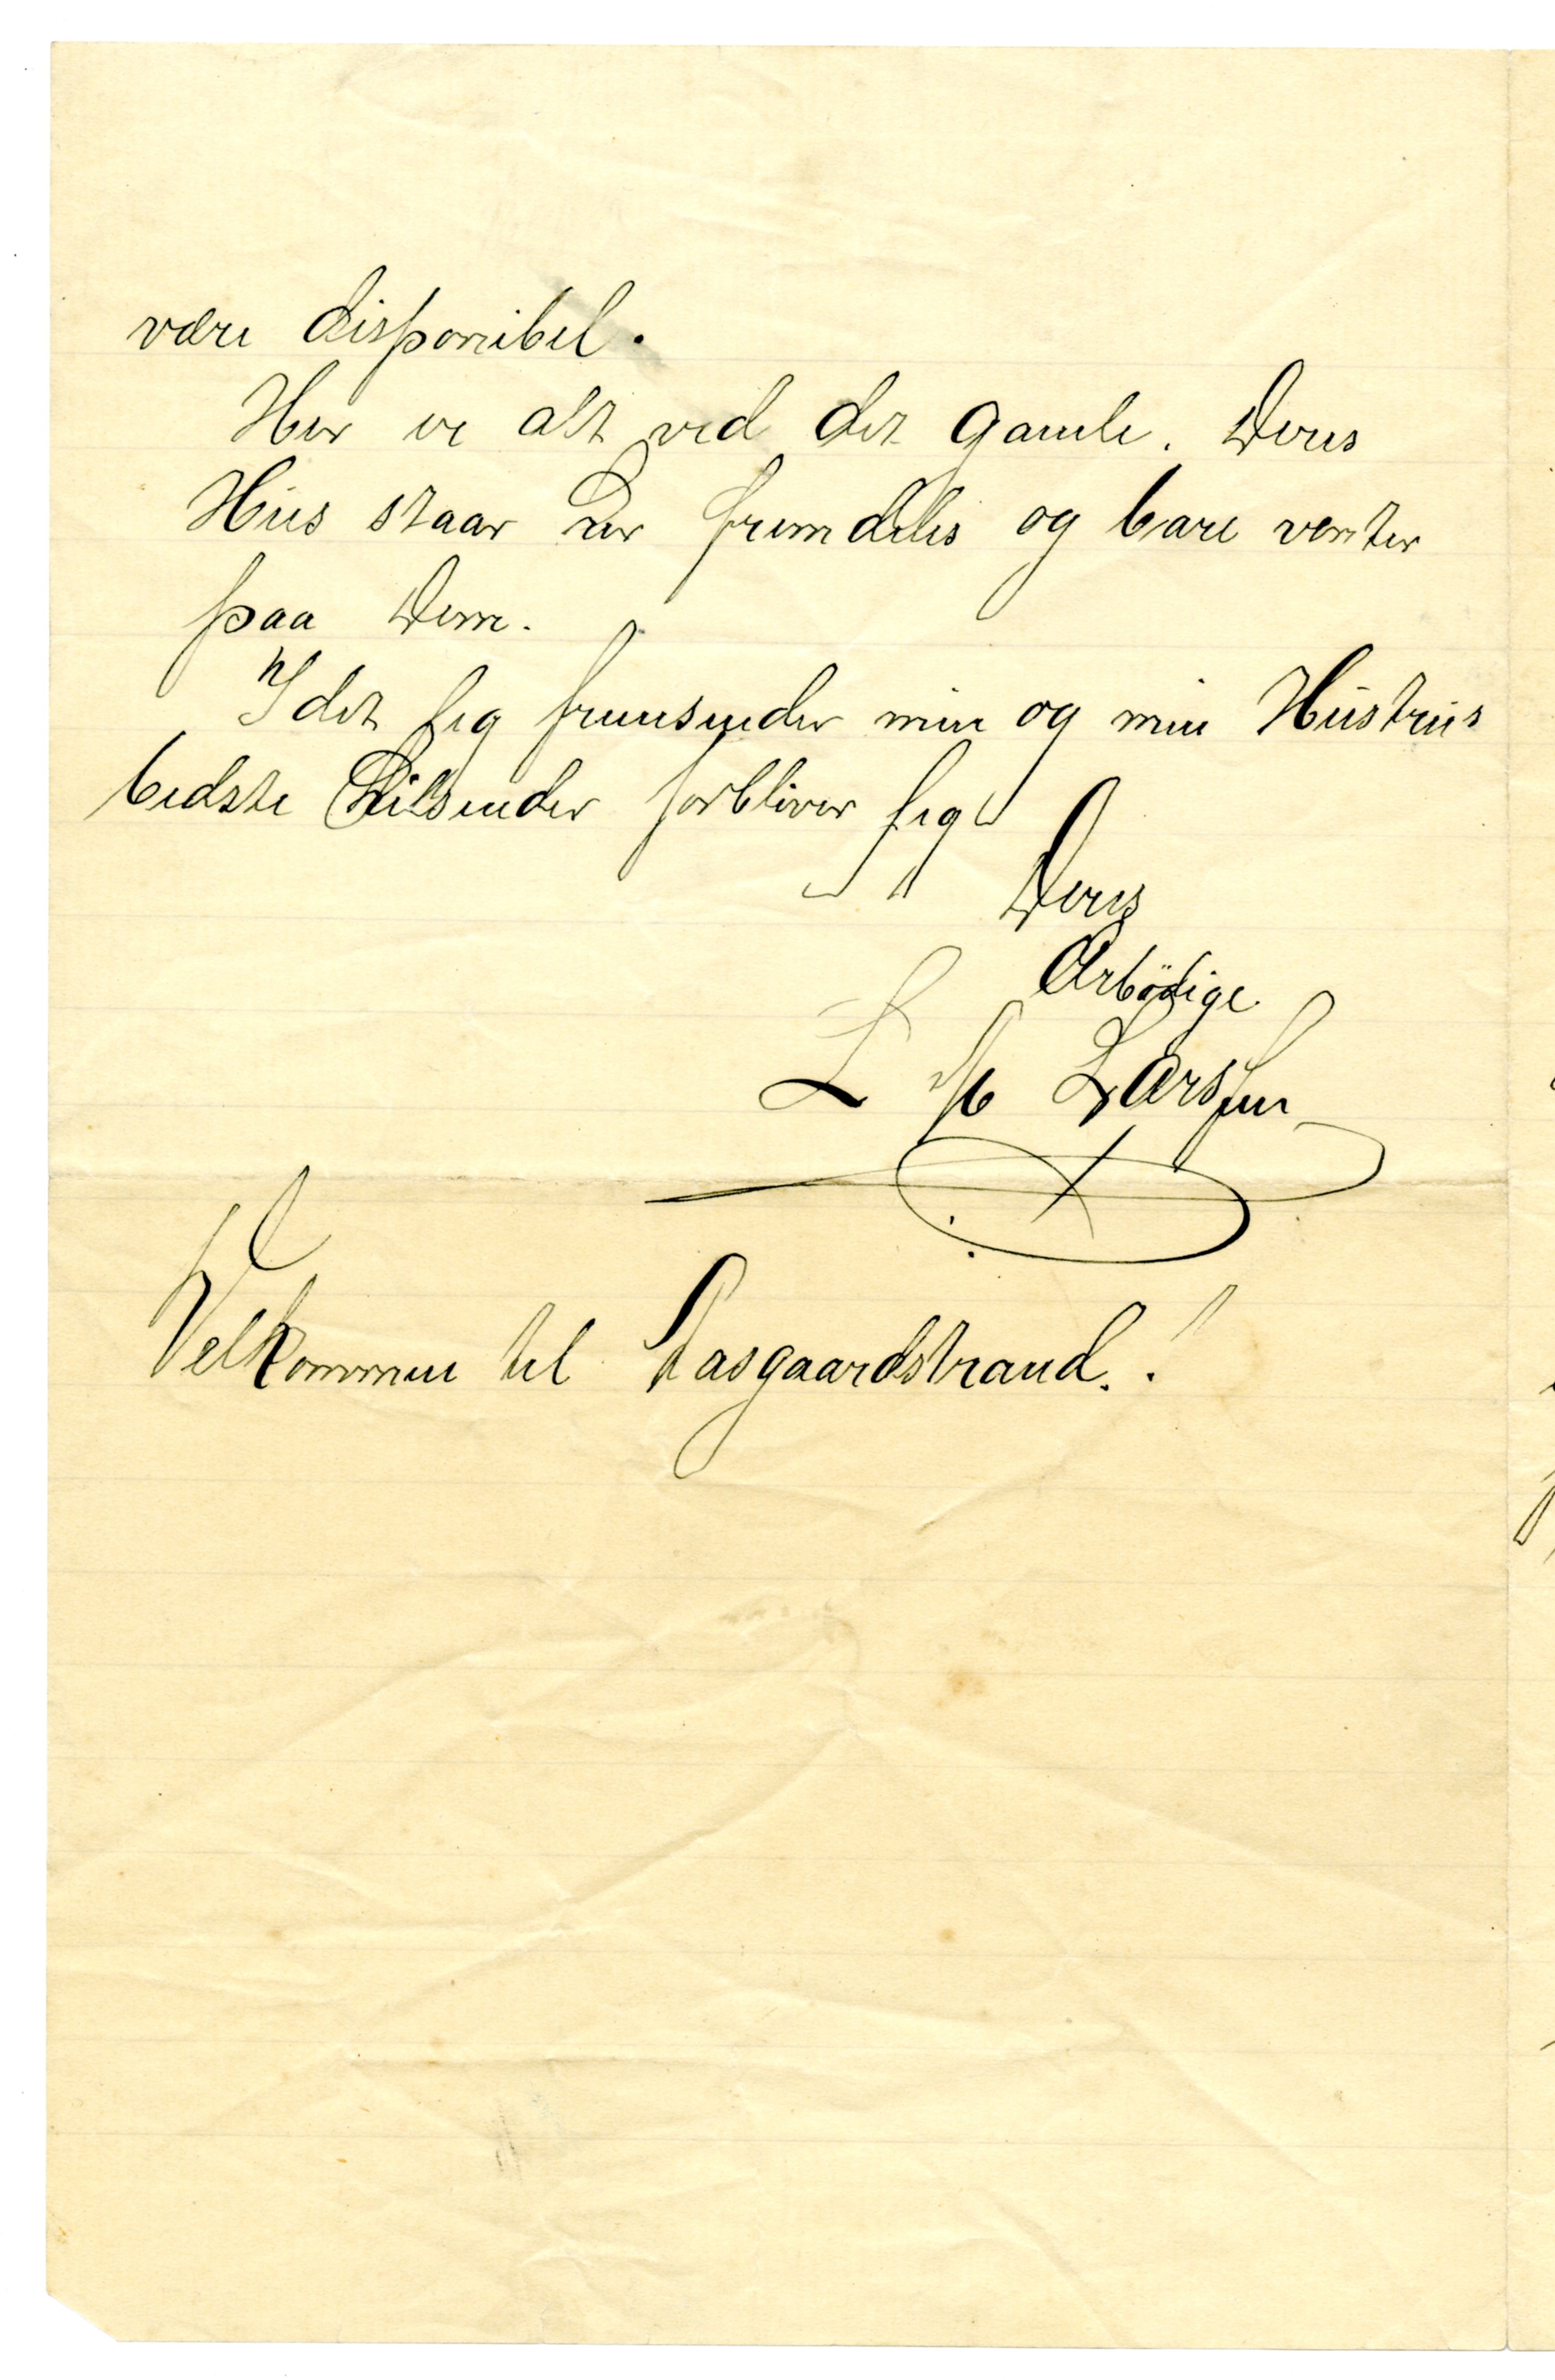 være disponibel.
Her er alt ved det gamle. Deres
Hus staar der fremdeles og bare venter
paa Dem.
Idet jeg fremsender min og min Hustrus
bedste Hilsender forbliver jeg
Deres
Ærbødige
L M Larssen
Velkommen til Aasgaardstrand.!